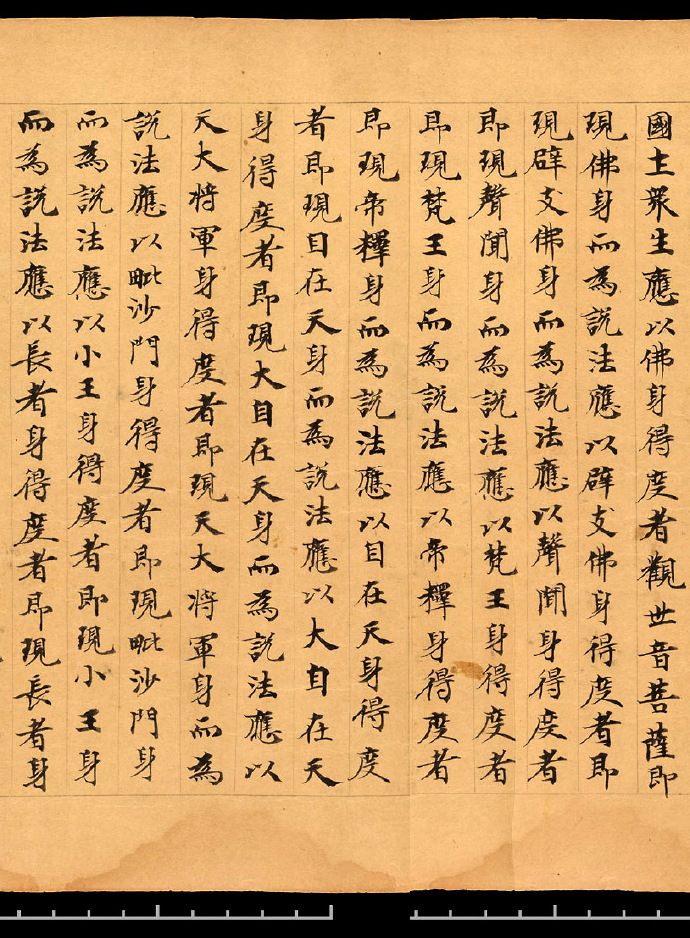 國土眾生應以佛身得度者觀世音菩薩即
現佛身而為說法應以辟支佛身得度者即
現辟支佛身而為說法應以聲聞身得度者
即現聲聞身而為說法應以梵王身得度者
即現梵王身而為說法應以帝釋身得度者
即現帝釋身而為說法應以自在天身得度
者即現自在天身而為說法應以大自在天
身得度者即現大自在天身而為說法應以
天大將軍身得度者即現天大將軍身而為
說法應以毗沙門身得度者即現毗沙門身
而為說法應以小王身得度者即現小王身
而為說法應以長者身得度者即現長者身